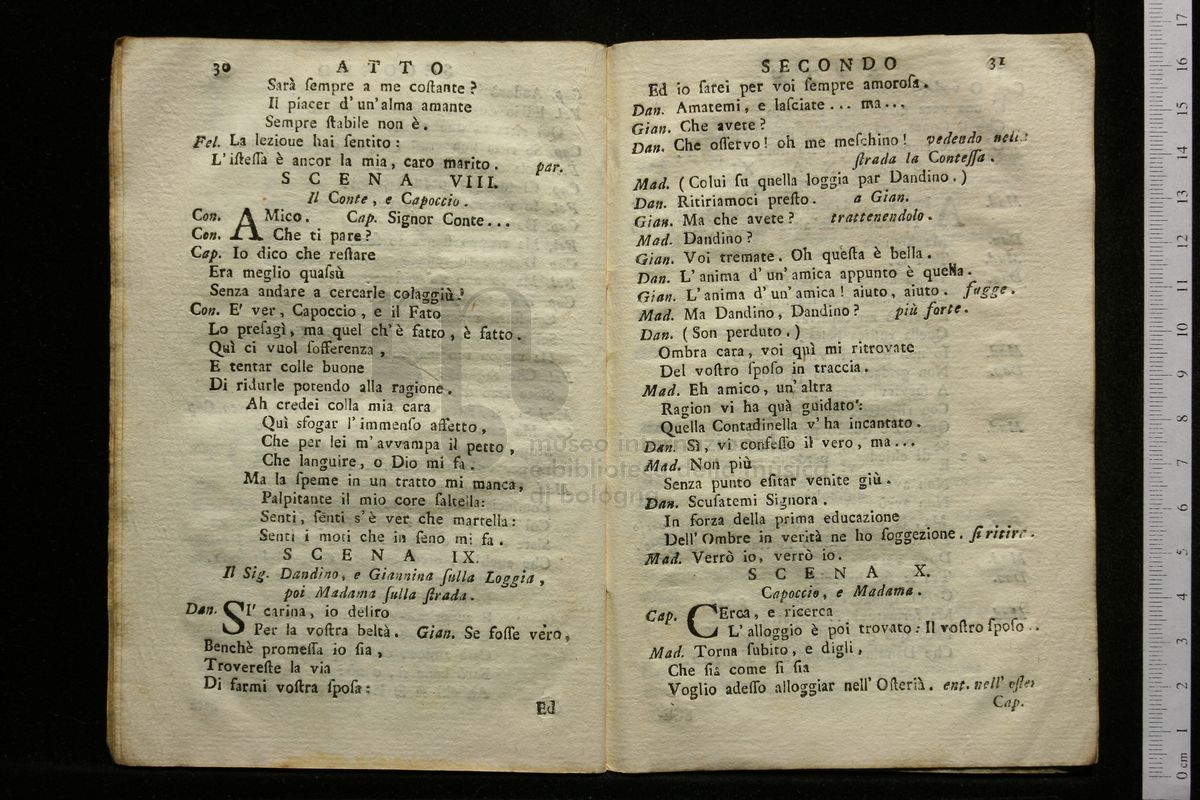 30 ATTO
Sarà ſempre a me coſtante?
Il piacer d'un'alma amante
Sempre ſtabile non è.
Fel. La lezioue hai ſentito:
L'iſteſſa è ancor la mia, caro marito. par.
SCENA VIII.
Il Conte, e Capoccio.
Con. AMico. Cap. Signor Conte...
Con. Che ti pare?
Cap. Io dico che reſtare
Era meglio quaſsù
Senza andare a cercarle colaggiù?
Con. E' ver, Capoccio, e il Fato
Lo preſagì, ma quel ch'è fatto, è fatto.
Quì ci vuol ſofferenza,
E tentar colle buone
Di ridurle potendo alla ragione.
Ah credei colla mia cara
Quì sfogar l'immenſo affetto,
Che per lei m'avvampa il petto,
Che languire, o Dio mi fa.
Ma la ſpeme in un tratto mi manca,
Palpitante il mio core ſaltella:
Senti, ſenti s'è ver che martella:
Senti i moti che in ſeno mi fa.
SCENA IX.
Il Sig. Dandino, e Giannina ſulla Loggia,
poi Madama ſulla ſtrada.
Dan. SI' carina, io deliro
Per la voſtra beltà. Gian. Se foſſe vero,
Benchè promeſſa io ſia,
Trovereſte la via
Di farmi voſtra ſpoſa:
Ed
SECONDO 31
Ed io ſarei per voi ſempre amoroſa.
Dan. Amatemi, e laſciate... ma...
Gian. Che avete?
Dan. Che oſſervo! oh me meſchino! vedendo nella
ſtrada la Conteſſa.
Mad. (Colui ſu qnella loggia par Dandino.)
Dan. Ritiriamoci preſto. a Gian.
Gian. Ma che avete? trattenendolo.
Mad. Dandino?
Gian. Voi tremate. Oh queſta è bella.
Dan. L'anima d'un'amica appunto è quella.
Gian. L'anima d'un'amica! aiuto, aiuto. fugge.
Mad. Ma Dandino, Dandino? più forte.
Dan. (Son perduto.)
Ombra cara, voi quì mi ritrovate
Del voſtro ſpoſo in traccia.
Mad. Eh amico, un'altra
Ragion vi ha quà guidato:
Quella Contadinella v'ha incantato.
Dan. Sì, vi confeſſo il vero, ma...
Mad. Non più
Senza punto eſitar venite giù.
Dan. Scuſatemi Signora.
In forza della prima educazione
Dell'Ombre in verità ne ho ſoggezione. ſi ritira.
Mad. Verrò io, verrò io.
SCENA X.
Capoccio, e Madama.
Cap. CErca, e ricerca
L'alloggio è poi trovato: Il voſtro ſpoſo..
Mad. Torna ſubito, e digli,
Che ſia come ſi ſia
Voglio adeſſo alloggiar nell'Oſteria. ent. nell'oſter
Cap.
museo internazionale
e biblioteca della musica
di bologna
0 cm 1 2 3 4 5 6 7 8 9 10 11 12 13 14 15 16 17